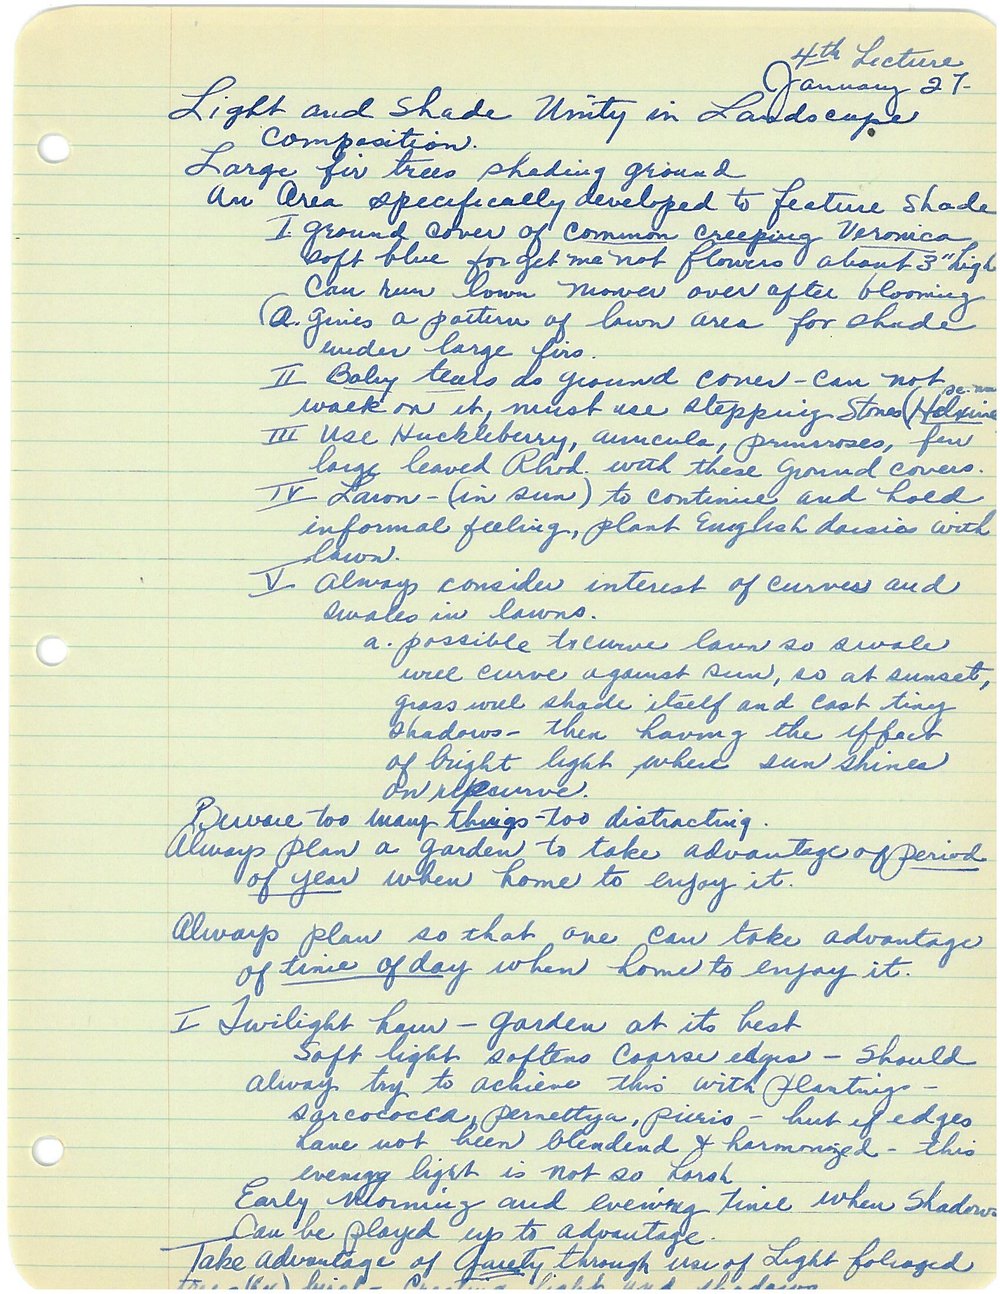 4th Lecture
January 27-
Light and Shade Unity in Landscape
Composition.
Large fir trees shading ground
An Area specifically developed to feature Shade
I ground cover of common creeping Veronica
soft blue forget me not flowers about 3" high
Can run lawn mower over after blooming
(a. Gives a pattern of lawn area for shade
under large firs.
II Baby tears as ground cover - can not
walk on it, must use stepping Stones (Helxine
III Use Huckleberry, auricula, primroses, few
large leaved Rhod. with these Ground covers.
IV Lawn - (in sun) to continue and hold
informal feeling, plant English daisies with
lawn.
V Always consider interest of curves and
swales in lawns.
a. possible to curve lawn so swale
will curve against sun, so at sunset,
grass will shade itself and cast tiny
shadows - then having the effect
of bright light where sun shines
on
Beware too many things - too distracting.
Always plan a garden to take advantage of period
of year when home to enjoy it.
Always plan so that one can take advantage
of time of day when home to enjoy it.
I Twilight hour - garden at its best
Soft light softens coarse edges - Should
always try to achieve this with plantings -
sarcococca, pernettya, pieris - but if edges
have not been blendend & harmonized - this
evening light is not so harsh
Early Morning and evening time when Shadows
Can be played up to advantage.
Take advantage of through use of Light foliaged
light and shadows